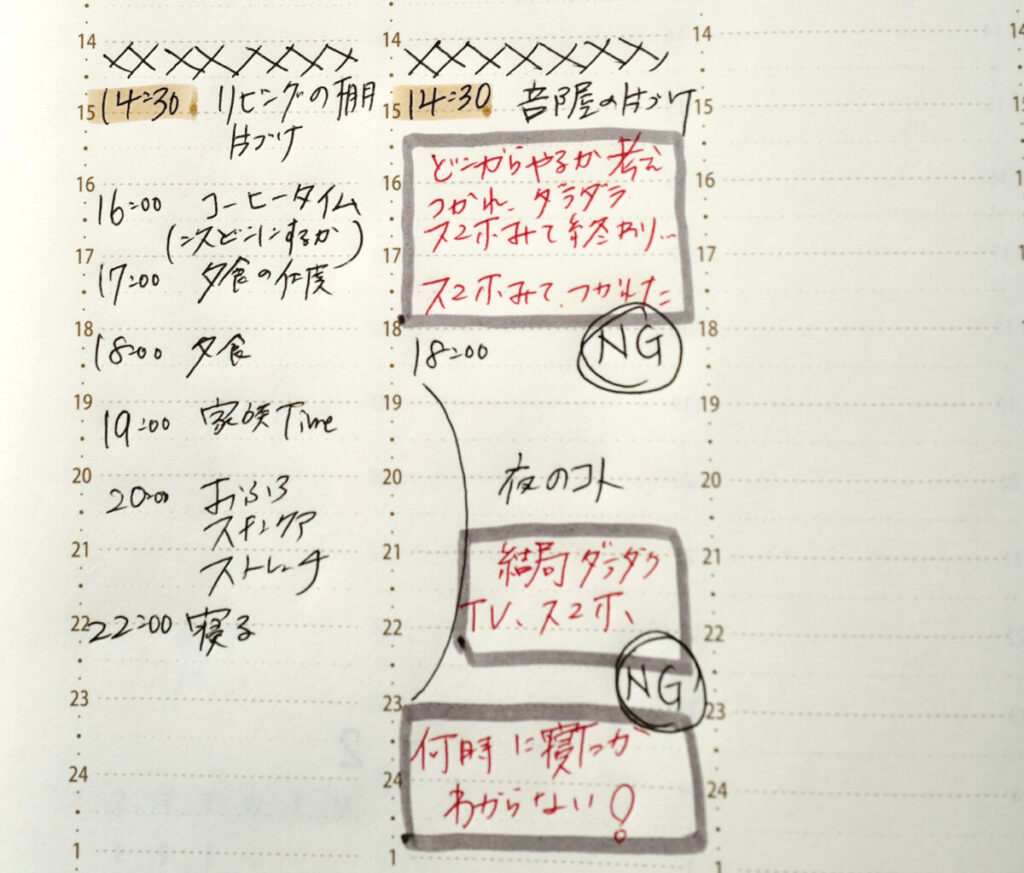 14
15
16
17
18
19
20
21
22
23
24
1
14:30 リビングの棚
片づけ
16:00 コーヒータイム
(次どこにするか)
17:00 夕食の仕度
18:00 夕食
19:00 家族Time
20:00 おふろ
スキンケア
ストレッチ
22:00 寝る
14
15
16
17
18
19
20
21
22
23
24
1
14:30 部屋の片づけ
どこからやるか考え
つかれ、ダラダラ
スマホみて終わり…
スマホみて、つかれた
NG
18:00
夜のコト
結局ダラダラ
TV、スマホ、
NG
何時に寝たか
わからない!
14
15
16
17
18
19
20
21
22
23
24
2